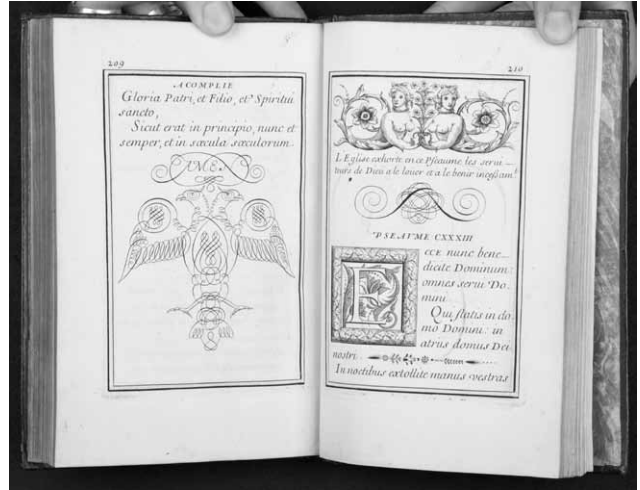 209
A COMPLIE
Gloria Patri, et Filio, et Spiritui
sancto,
Sicut erat in principio, nunc et
semper, et in sæcula sæculorum
AMEN
210
L'Eglise exhorte en ce Pseaume les servi–
teurs de Dieu a le louer et a le benir incessam.t
PSEAVME CXXXIII
ECCE nunc bene–
dicite Dominum:
omnes servi Do–
mini
Qui statis in do–
mo Domini: in
atrus domus Dei
nostri.
In noctibus extollite manus vestras